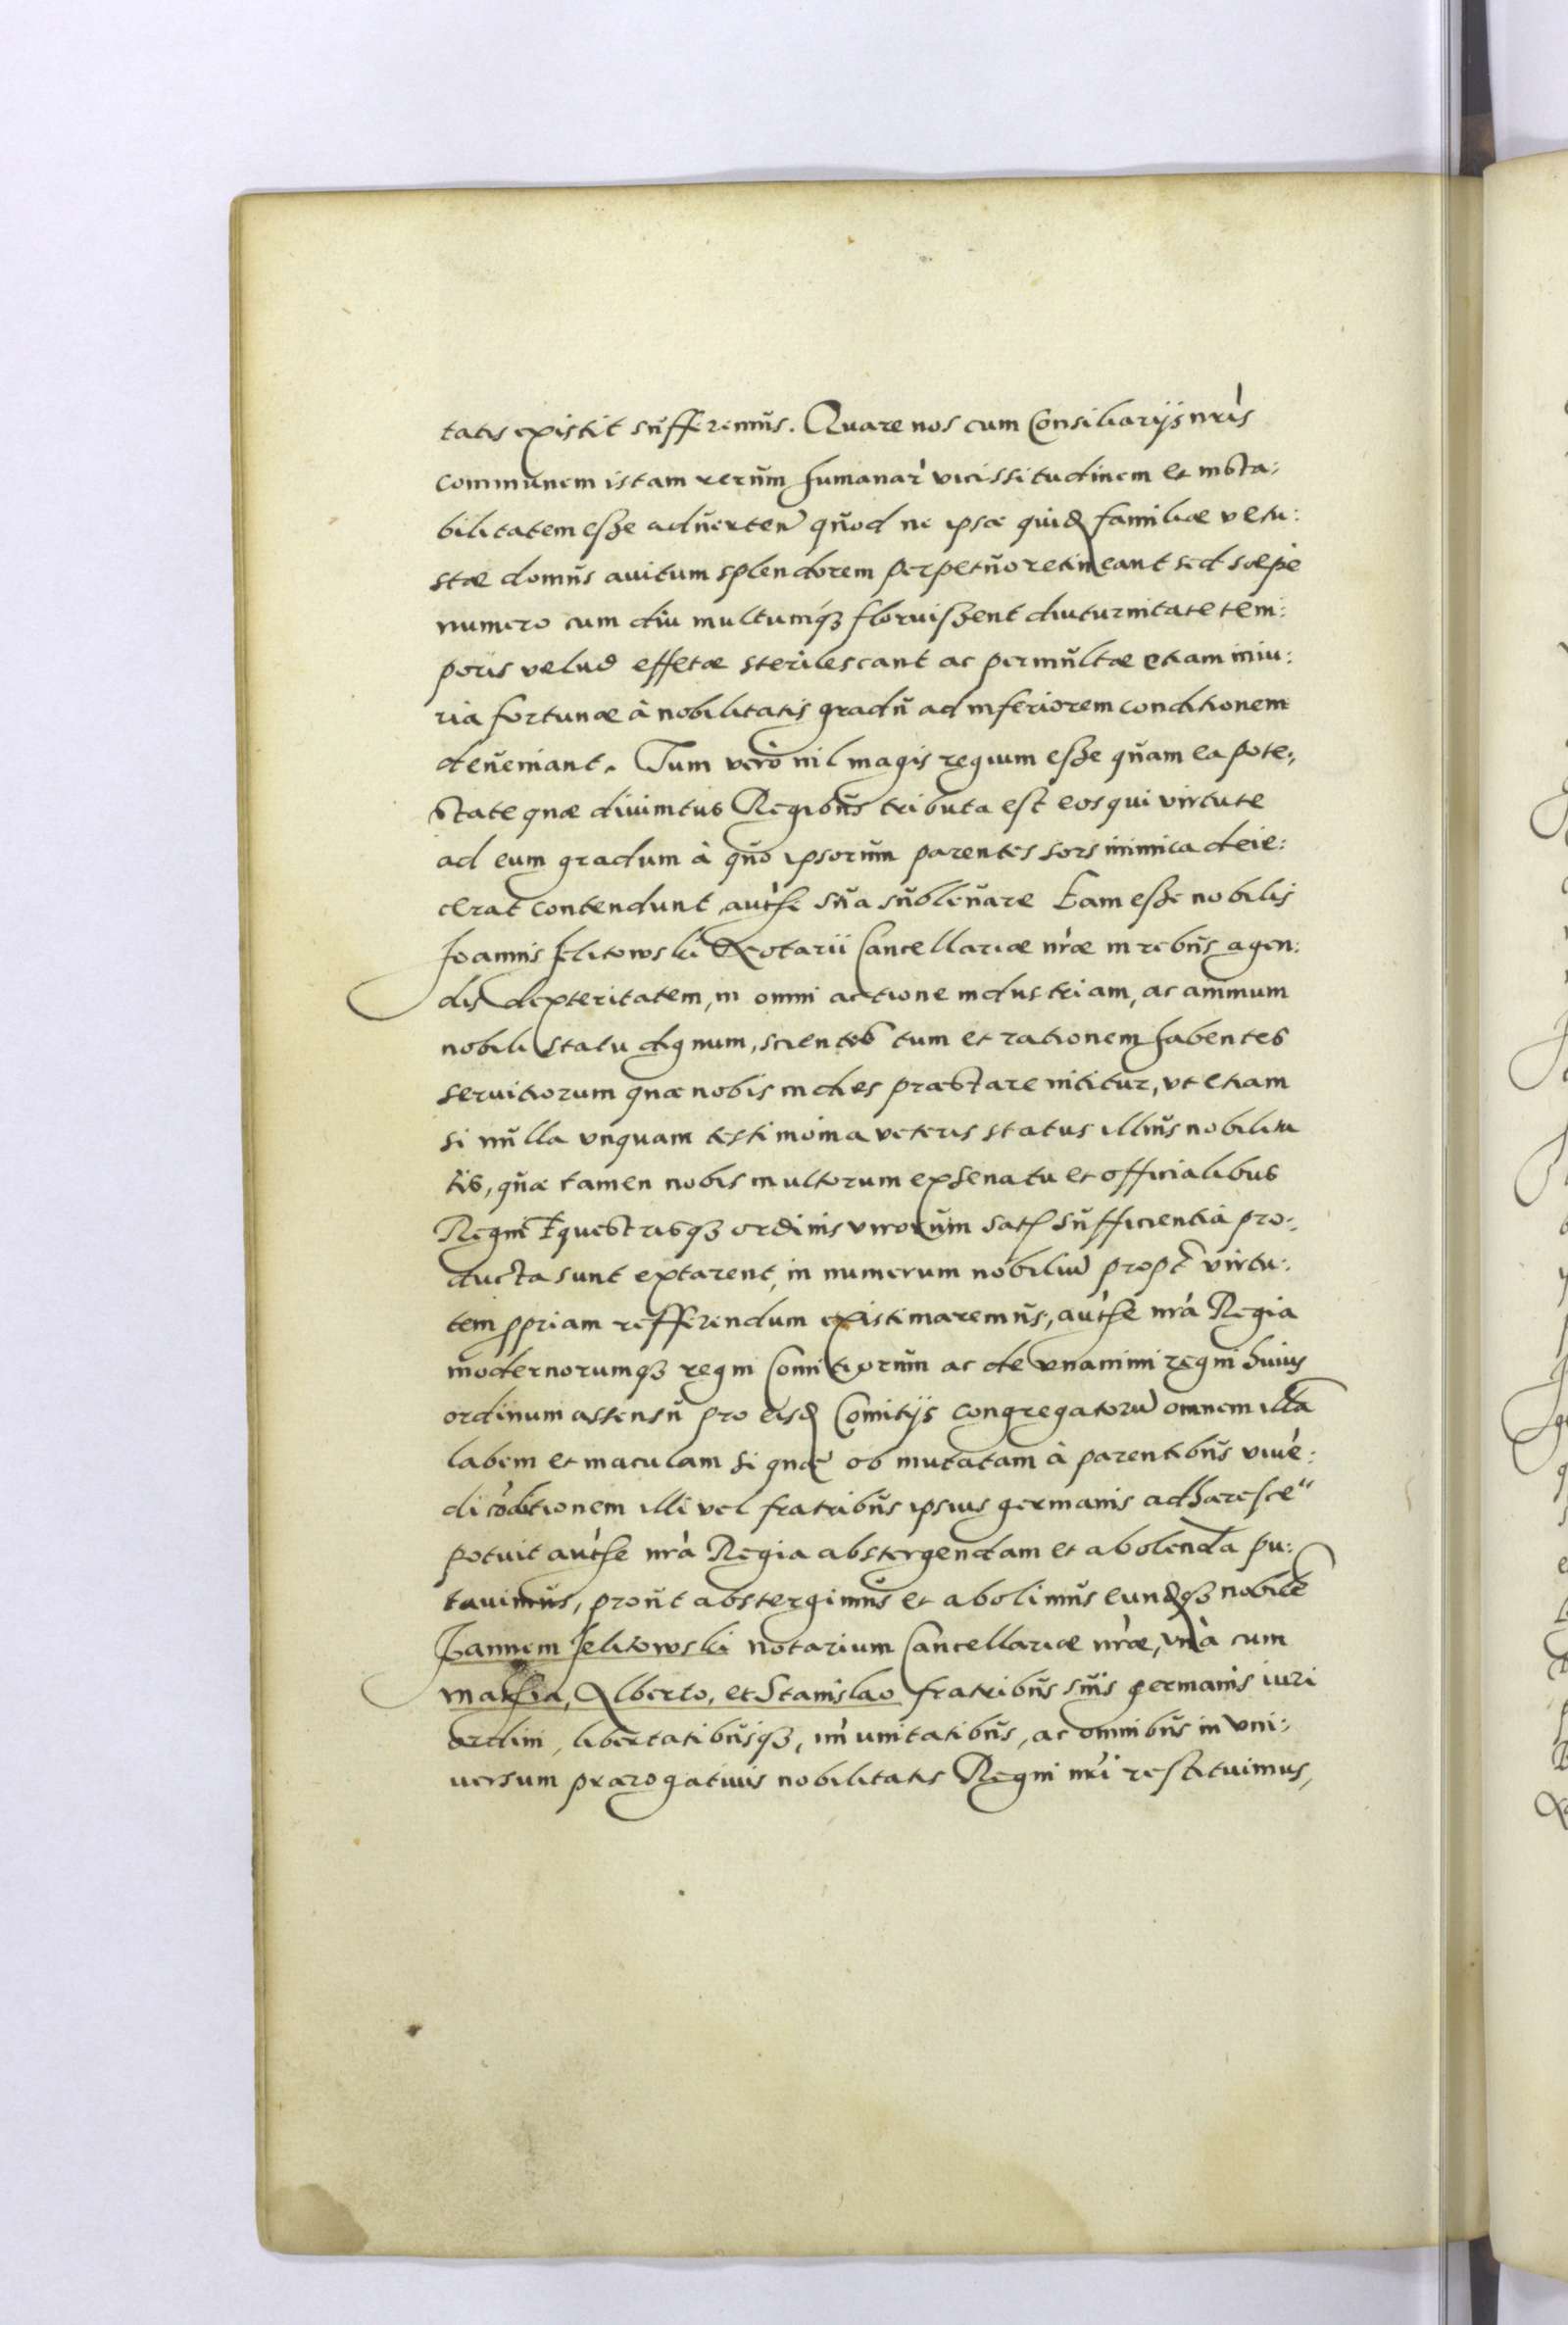 tatis existit sufferemus. Quare nos cum Consiliarijs nr̃is
communem istam rerum humanar̃ vicissitudinem et insta:
bilitatem esse aduerten̄ quod ne ipsæ quid̃ familiæ vetu:
stæ domus auitum splendorem perpetuo retineant sed sæpe
numero cum diu multumq3 floruissent diuturnitate tem:
poris velud effetæ sterilescant ac permultæ etiam iniu:
ria fortunæ à nobilitatis gradu ad inferiorem conditionem
deueniant. Tum vero nil magis regium esse quam ea pote:
state quæ diuinitus Regibus tributa est eos qui virtute
ad eum gradum à quo ipsorum parentes sors inimica deie:
cerat contendunt autħe sua subleuare Eam esse nobilis
Joannis Jelitowski Notarii Cancellariæ nr̃æ in rebus agen:
dis dexteritatem, in omni actione industriam, ac animum
nobili statu dignum, scientes tum et rationem habentes
seruitiorum quæ nobis indies præstare nititur, vt etiam
si nulla vnquam testimonia veteris status illius nobilita
tis, quæ tamen nobis multorum ex senatu et officialibus
Regni Equestrisq3 ordinis virorum satis sufficientia pro:
ducta sunt extarent, in numerum nobiliū propt̃ virtu:
tem ꝓpriam refferendum existimaremus, autħe nr̃a Regia
modernorumq3 regni Comitiorum ac de vnanimi regni huius
ordinum assensu pro eisd̃ Comitijs congregatorū omnem illā
labem et maculam si quæ ob mutatam à parentibus viuē:
di cōditionem illi vel fratribus ipsius germanis adhæresce"
potuit autħe nr̃a Regia abstergendam et abolendā pu:
tauimus, prout abstergimus et abolimus eund̃q3 nobilē
Joannem Jelitowski notarium Cancellariæ nr̃æ, vnà cum
Mathia, Alberto, et Stanislao fratribus suis germanis iuri
ordini, libertatibusq3, im̃unitatibus, ac omnibus in vni:
uersum prærogatiuis nobilitatis Regni nr̃i restituimus,